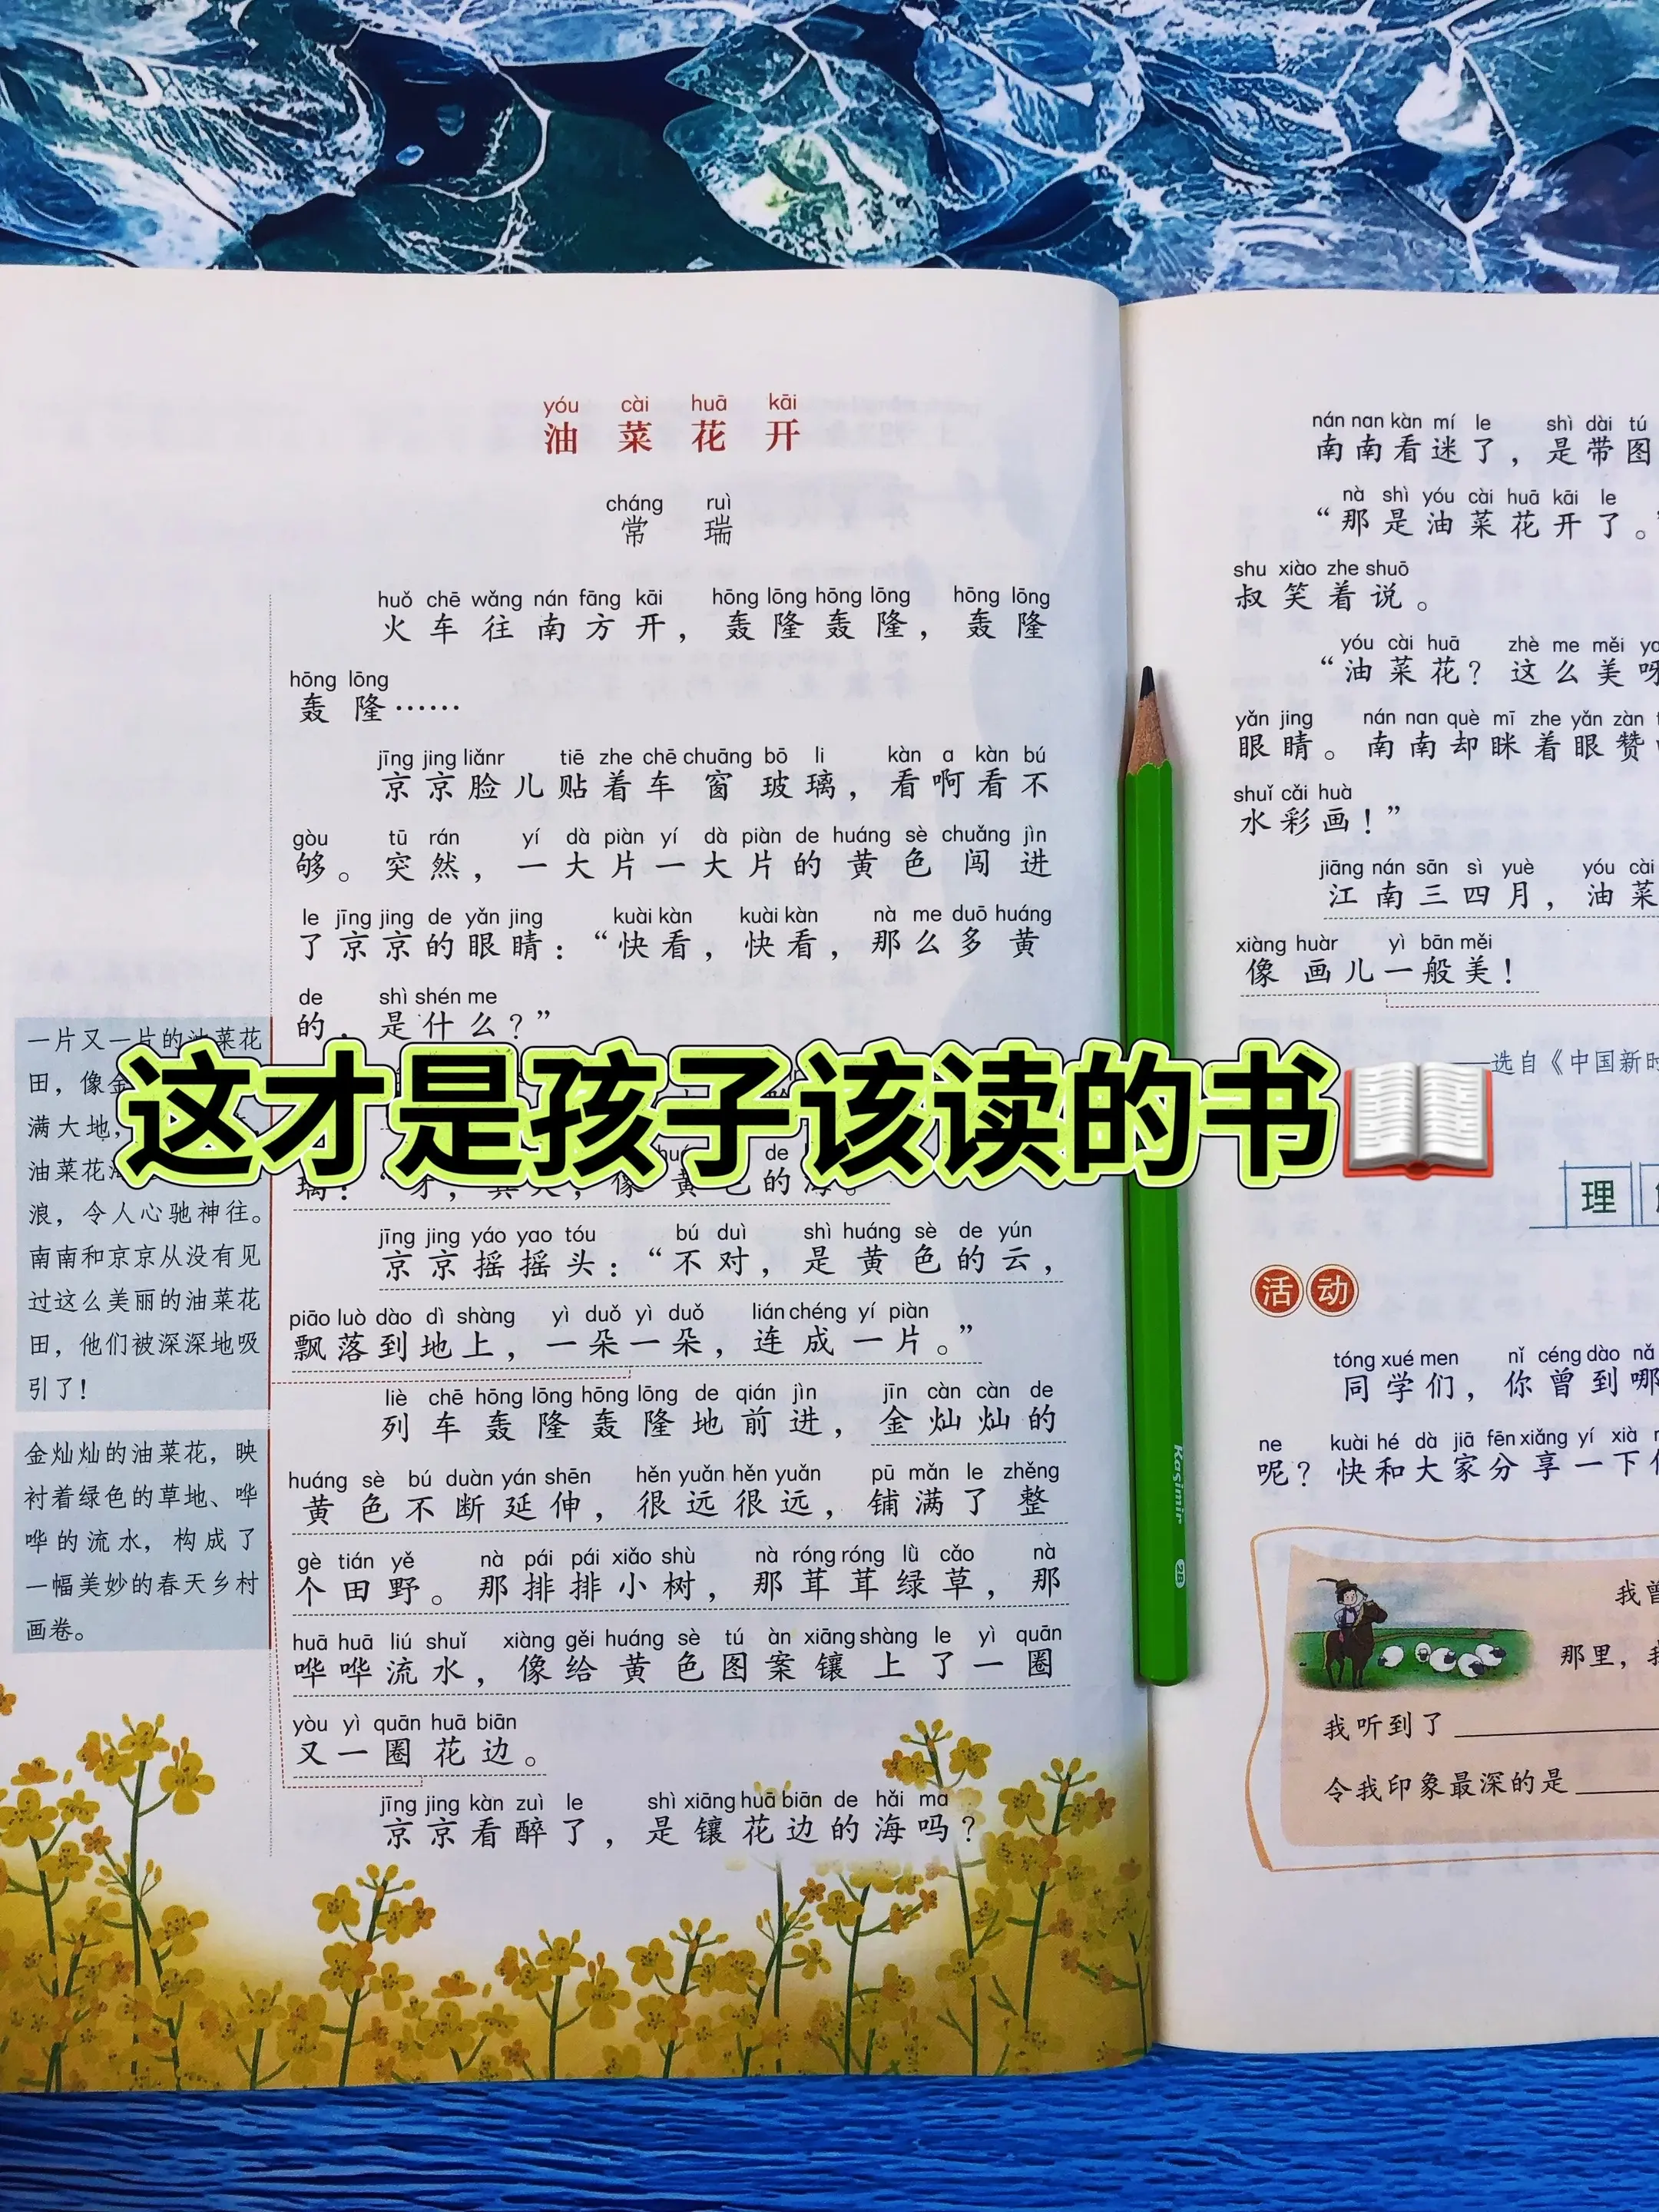 yóu cài huā kāi
油菜花开
cháng ruì
常瑞
huǒ chē wǎng nán fāng kāi hōng lōng hōng lōng hōng lōng
火车往南方开，轰隆轰隆，轰隆
hōng lōng
轰隆……
jīng jing liǎnr tiē zhe chē chuāng bō li kàn a kàn bú
京京脸儿贴着车窗玻璃，看啊看不
gòu tū rán yí dà piàn yí dà piàn de huáng sè chuǎng jìn
够。突然，一大片一大片的黄色闯进
le jīng jing de yǎn jing kuài kàn kuài kàn nà me duō huáng
了京京的眼睛：“快看，快看，那么多黄
de shì shén me
的，是什么？”
这才是孩子该读的书
jīng jing yáo yao tóu bú duì shì huáng sè de yún
京京摇摇头：“不对，是黄色的云，
piāo luò dào dì shàng yì duǒ yì duǒ lián chéng yí piàn
飘落到地上，一朵一朵，连成一片。”
liè chē hōng lōng hōng lōng de qián jìn jīn càn càn de
列车轰隆轰隆地前进，金灿灿的
huáng sè bú duàn yán shēn hěn yuǎn hěn yuǎn pū mǎn le zhěng
黄色不断延伸，很远很远，铺满了整
gè tián yě nà pái pái xiǎo shù nà róng róng lǜ cǎo nà
个田野。那排排小树，那茸茸绿草，那
huā huā liú shuǐ xiàng gěi huáng sè tú àn xiāng shàng le yì quān
哗哗流水，像给黄色图案镶上了一圈
yòu yì quān huā biān
又一圈花边。
jīng jing kàn zuì le shì xiāng huā biān de hǎi ma
京京看醉了，是镶花边的海吗？
一片又一片的油菜花
田，像金
满大地，
油菜花海
浪，令人心驰神往。
南南和京京从没有见
过这么美丽的油菜花
田，他们被深深地吸
引了！
金灿灿的油菜花，映
衬着绿色的草地、哗
哗的流水，构成了
一幅美妙的春天乡村
画卷。
Kasimir 2B
nán nan kàn mí le shì dài tú
南南看迷了，是带图
nà shì yóu cài huā kāi le
“那是油菜花开了。”
shu xiào zhe shuō
叔笑着说。
yóu cài huā zhè me měi
“油菜花？这么美呀
yǎn jing nán nan què mī zhe yǎn zàn
眼睛。南南却眯着眼赞
shuǐ cǎi huà
水彩画！”
jiāng nán sān sì yuè yóu cài
江南三四月，油菜
xiàng huàr yì bān měi
像画儿一般美！
——选自《中国新时
理
活动
tóng xué men nǐ céng dào nǎ
同学们，你曾到哪
ne kuài hé dà jiā fēn xiǎng yí xià
呢？快和大家分享一下
我曾
那里，我
我听到了
令我印象最深的是